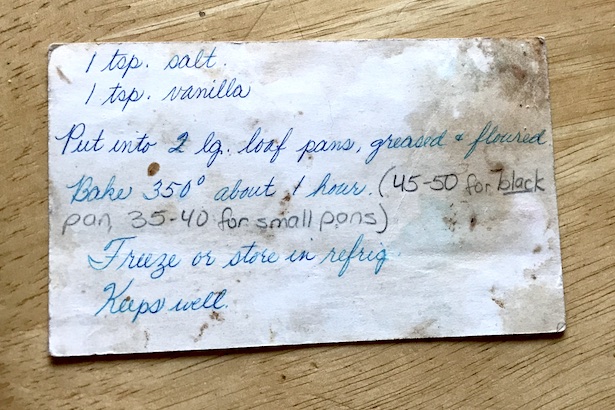 1 tsp. salt.
1 tsp. vanilla
Put into 2 lg. loaf pans, greased & floured
Bake 350° about 1 hour. (45-50 for black
pan, 35-40 for small pans)
Freeze or store in refrig.
Keeps well.